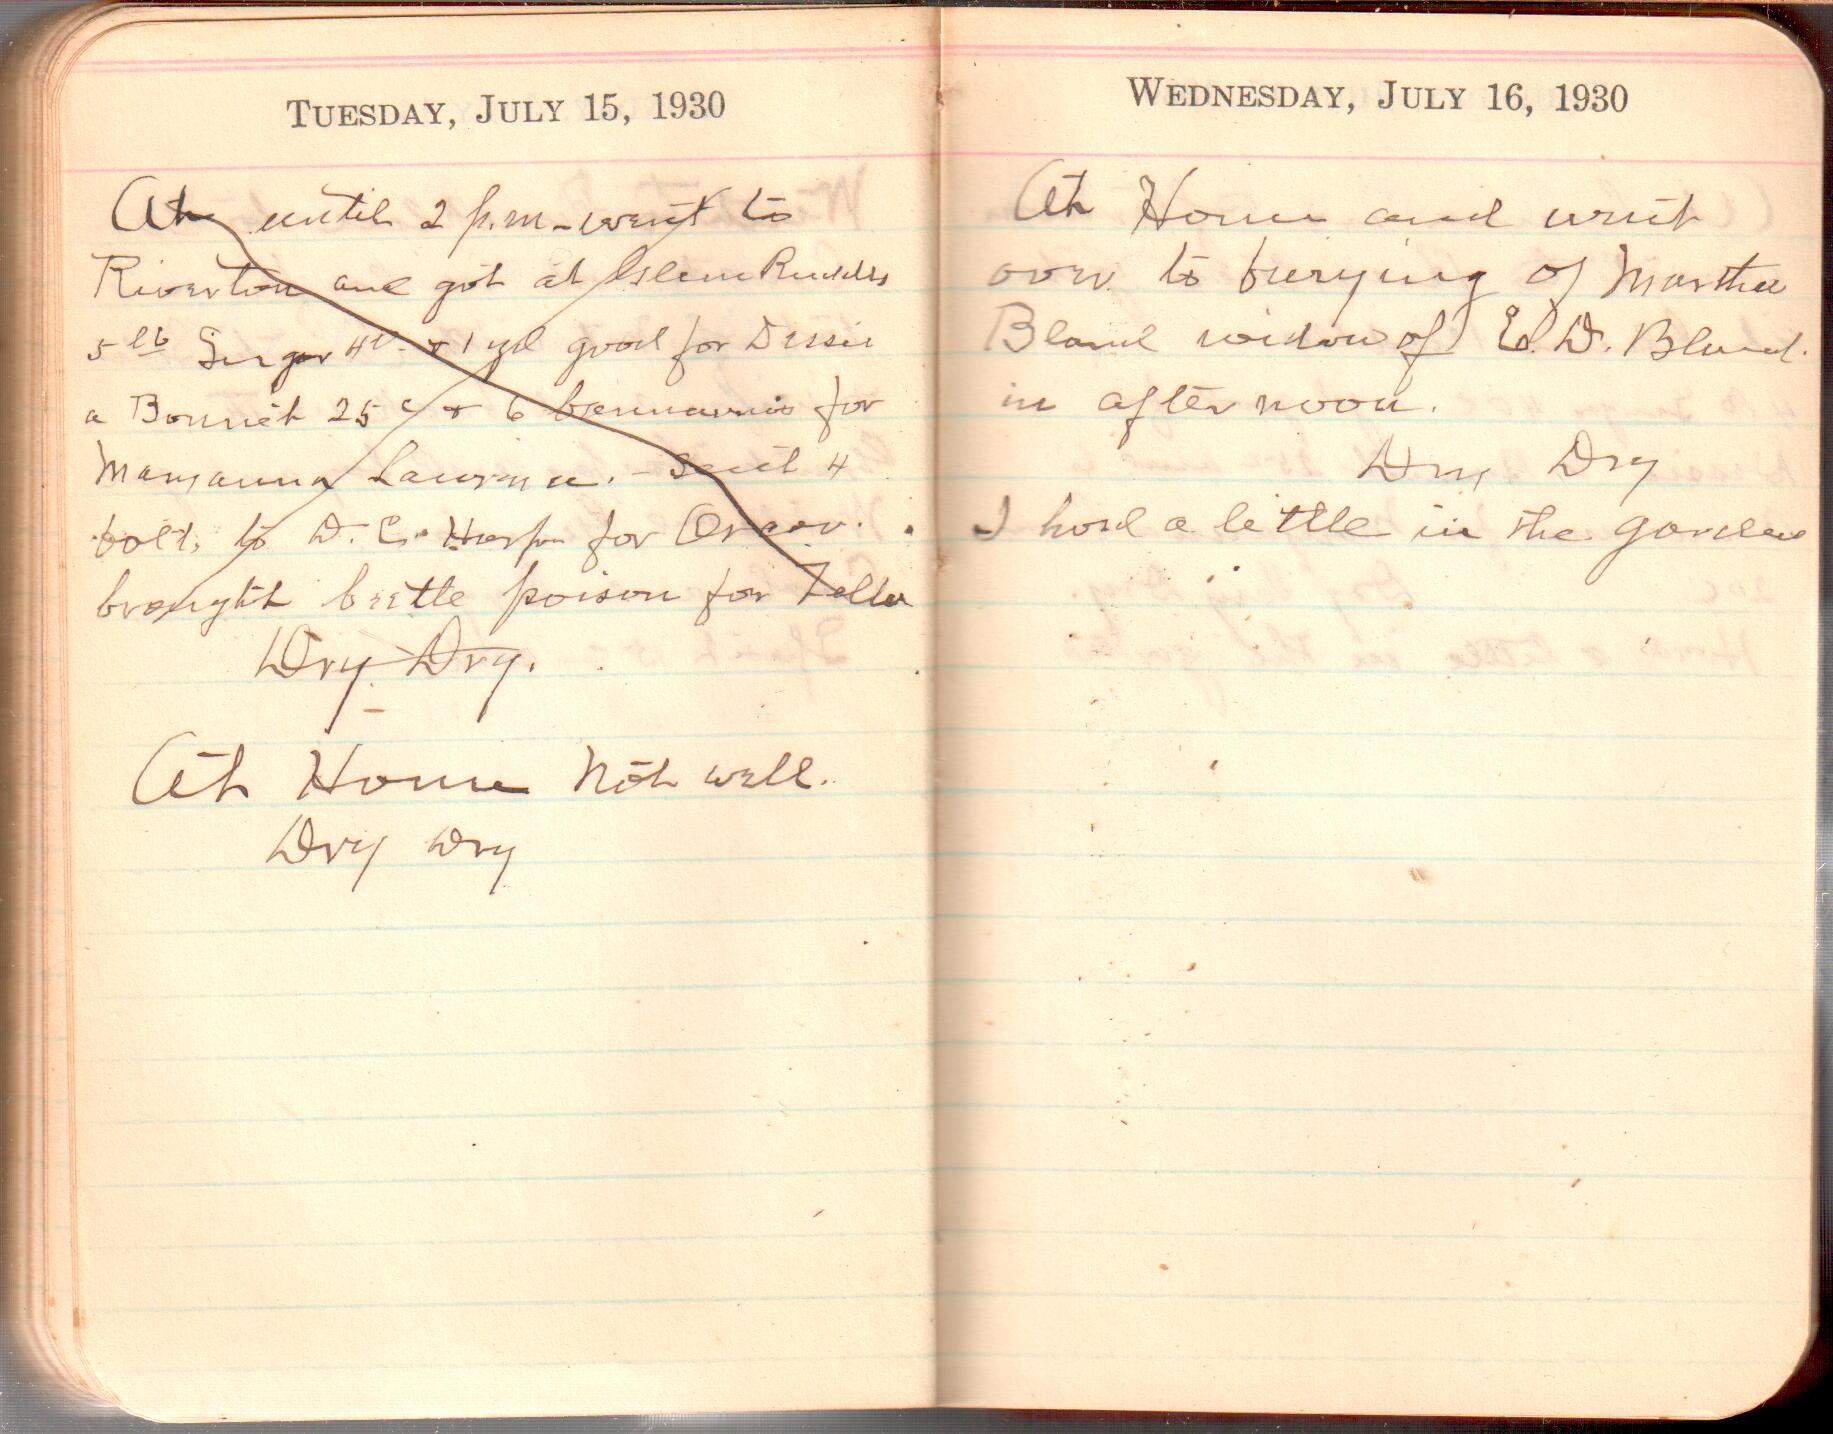 TUESDAY, JULY 15, 1930
At until 2 p.m - went to
Riverton and got at Glenn
5 lb Sugar & 1 yd good for Dessie
a Bonnet 25c & 6 for
Maryanna Lawrence. - Sent 4
bolts to D. C. Harper for Oscar.
brought beetle poison for Zella
Dry Dry.
At Home Not well.
Dry Dry
WEDNESDAY, JULY 16, 1930
At Home and went
over to burying of Martha
Bland widow of E. D. Bland.
in afternoon.
Dry Dry
I hoed a little in the garden